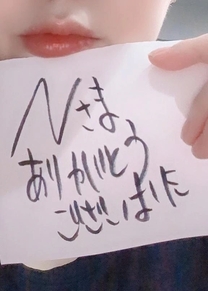 Nさま
ありがとう
ございました